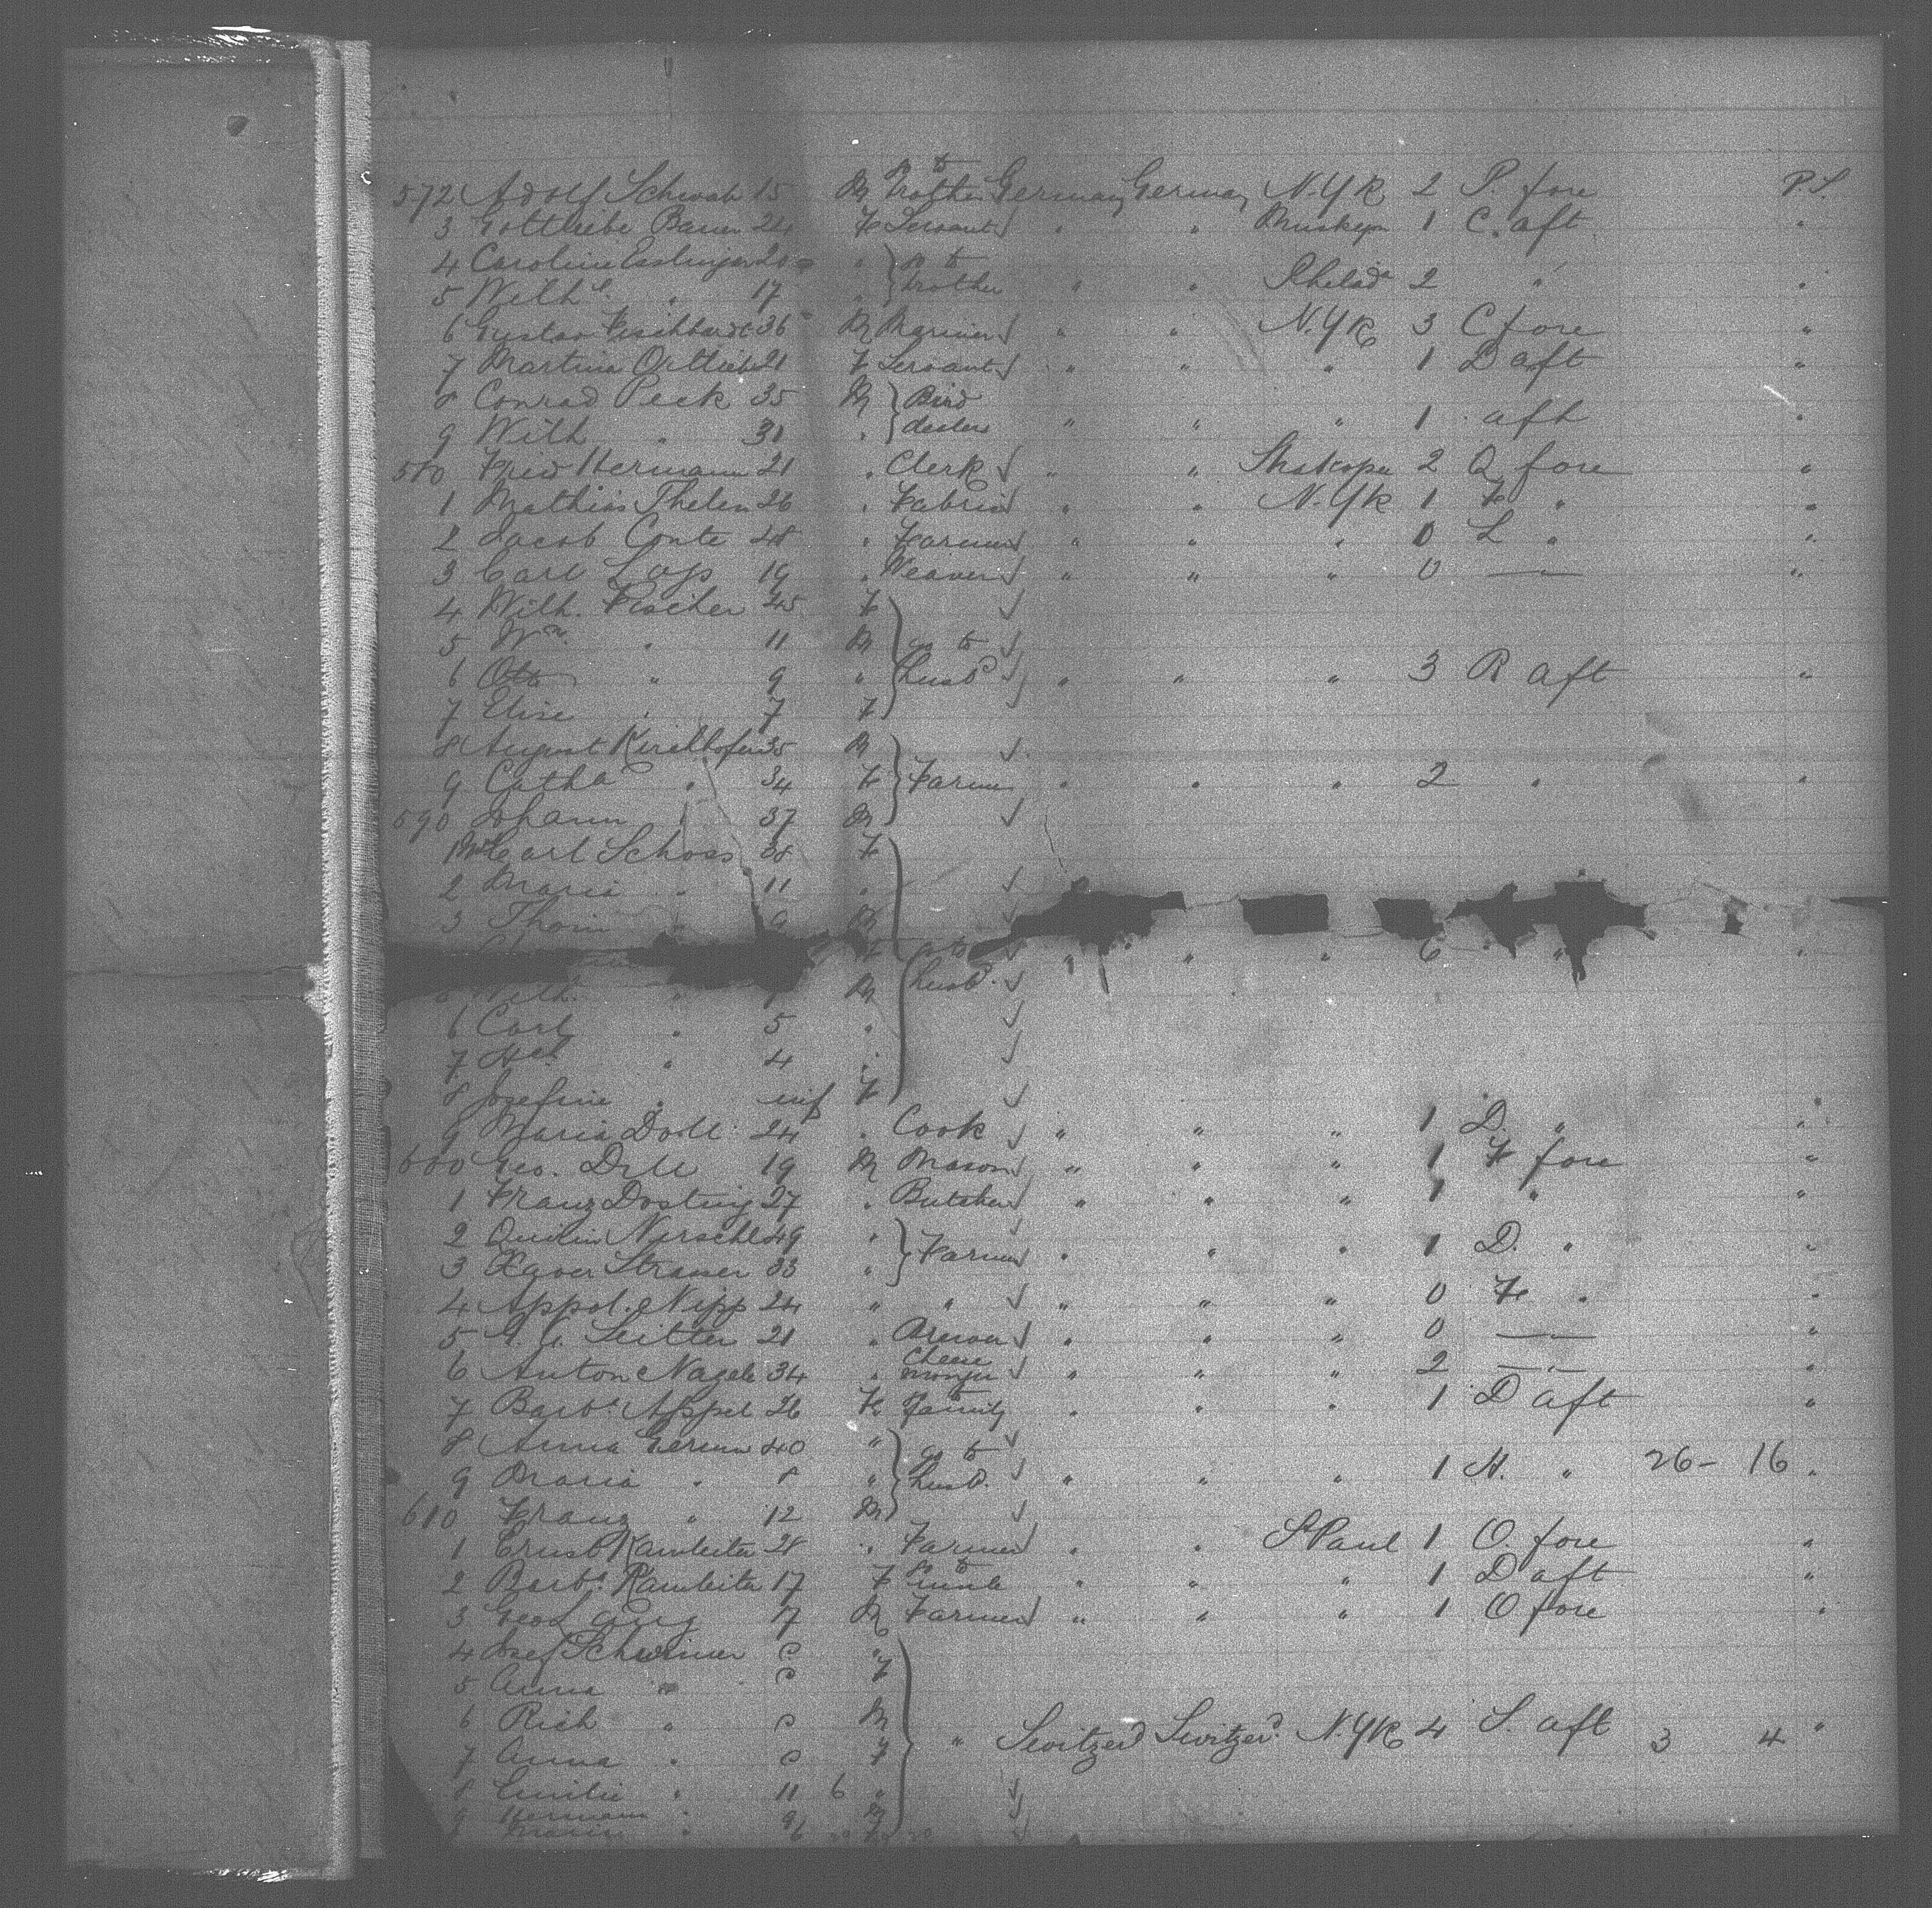 572 Adolf Schwab 15 M to brother Germany Germany N.Yk 2 P. fore P.S.
3 Gottliebe Bauer 24 F Servant " " Muskegon 1 C. aft "
4 Caroline Esslinger 20 " to
5 Wilh. " 17 " brother " " Philada 2 " "
6 Gustav 36 M Mariner " " N.Yk 3 C fore "
7 Martina Ortlieb 21 F Servant " " " 1 D aft "
8 Conrad Peck 35 M Bird
9 Wilh " 31 " dealers " " " 1 aft "
580 Fried Hermann 21 " Clerk " " Shakopee 2 Q fore "
1 Mathias Thelen 26 " " " N.Yk 1 F " "
2 Jacob Conte 48 " Farmer " " " 0 L " "
3 Carl Lops 19 " Weaver " " " 0 — " — "
4 Wilh. Fischer 45 F
5 Wm. " 11 M to
6 Otto " 9 " husbd " " " 3 R aft "
7 Elise " 7 F
8 August Kirchhofer 35 M
9 Catha " 34 F Farmer " " " 2 " "
590 Johann " 37 M
1 Mrs Carl Schoss 38 F
2 Maria " 11 "
3 " 9 M
F to " " " 6 " "
Wilh. " 7 M husbd.
6 Carl " 5 "
7 Hch " 4 "
8 Josefine " inf F
9 Maria Doll 24 " Cook " " " 1 D. " "
600 Geo. Dill 19 M Mason " " " 1 F fore "
1 Franz Dosting 27 " Butcher " " " 1 " "
2 Quirin Nirschl 49 "
3 Xaver Strauer 33 " Farmer " " " 1 D. " "
4 Appol. Nipp 24 " " " " " 0 F " "
5 Seitter 21 " Brewer " " " 0 — " — "
6 Anton Nagele 34 " Cheese monger " " " 2 — " — "
7 Barb. Appel 26 F to family " " " 1 D aft "
8 Anna 40 " to
9 Maria " 8 " husbd. " " " 1 H. " 26 - 16 "
610 Franz " 12 M
1 Ernst Kambeitz 28 " Farmer " " St Paul 1 O. fore "
2 Barba. Kambeitz 17 F to uncle " " " 1 D aft "
3 Geo Lang 17 M Farmer " " " 1 O fore "
4 Josef Schwimer C "
5 Anna " C F
6 Rich " C M
7 Anna " C F " Switzerd Switzerd. N.Yk 4 S. aft 3 4 "
8 Emilie " 11 6 "
9 Hermann " 9 M